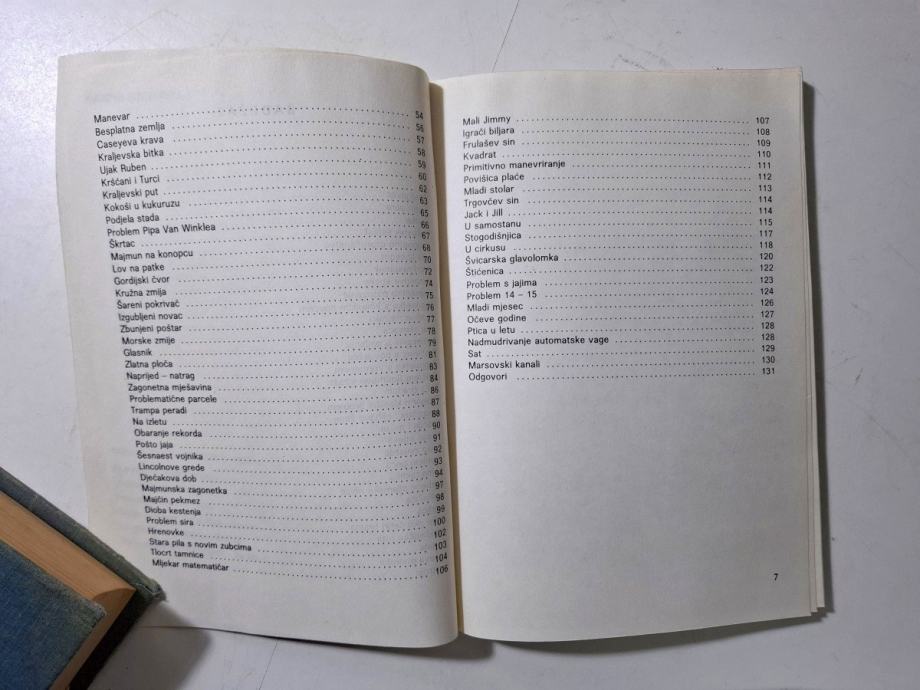 Manevar 54
Besplatna zemlja 56
Caseyeva krava 57
Kraljevska bitka 58
Ujak Ruben 59
Kršćani i Turci 60
Kraljevski put 62
Kokoši u kukuruzu 63
Podjela stada 65
Problem Pipa Van Winklea 66
Škrtac 67
Majmun na konopcu 68
Lov na patke 70
Gordijski čvor 72
Kružna zmija 74
Šareni pokrivač 75
Izgubljeni novac 76
Zbunjeni poštar 77
Morske zmije 78
Glasnik 79
Zlatna ploča 81
Naprijed – natrag 83
Zagonetna mješavina 84
Problematične parcele 86
Trampa peradi 87
Na izletu 88
Obaranje rekorda 90
Pošto jaja 91
Šesnaest vojnika 92
Lincolnove grede 93
Dječakova dob 94
Majmunska zagonetka 97
Majčin pekmez 98
Dioba kestenja 99
Problem sira 100
Hrenovke 102
Stara pila s novim zubcima 103
Tlocrt tamnice 104
Mljekar matematičar 106
Mali Jimmy 107
Igrači biljara 108
Frulašev sin 109
Kvadrat 110
Primitivno manevriranje 111
Povišica plaće 112
Mladi stolar 113
Trgovčev sin 114
Jack i Jill 114
U samostanu 115
Stogodišnjica 117
U cirkusu 118
Švicarska glavolomka 120
Štićenica 122
Problem s jajima 123
Problem 14 – 15 124
Mladi mjesec 126
Očeve godine 127
Ptica u letu 128
Nadmudrivanje automatske vage 128
Sat 129
Marsovski kanali 130
Odgovori 131
7